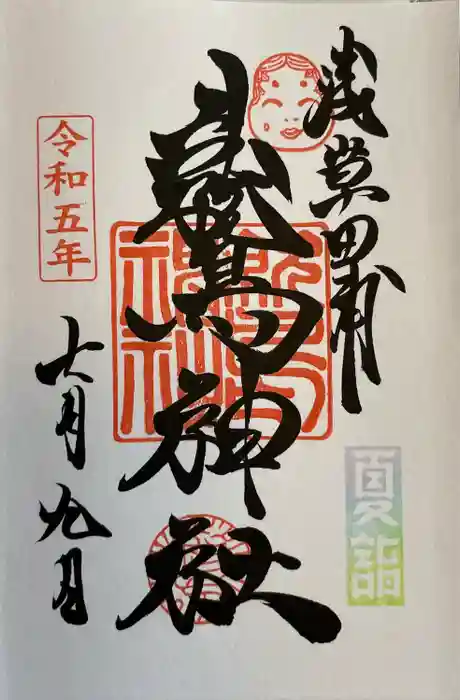 浅草田甫
鷲神社
令和五年
七月九日
夏詣